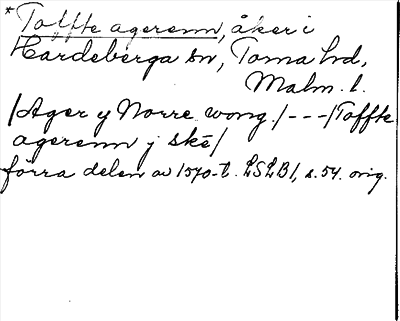 * Toffte agerenn, åker i
Hardeberga sn, Torna hd,
Malm. l.
/Ager y Norre wong./---/Toffte
agerenn j skē/
förra delen av 1570-t. LSLB1, s. 54. orig.